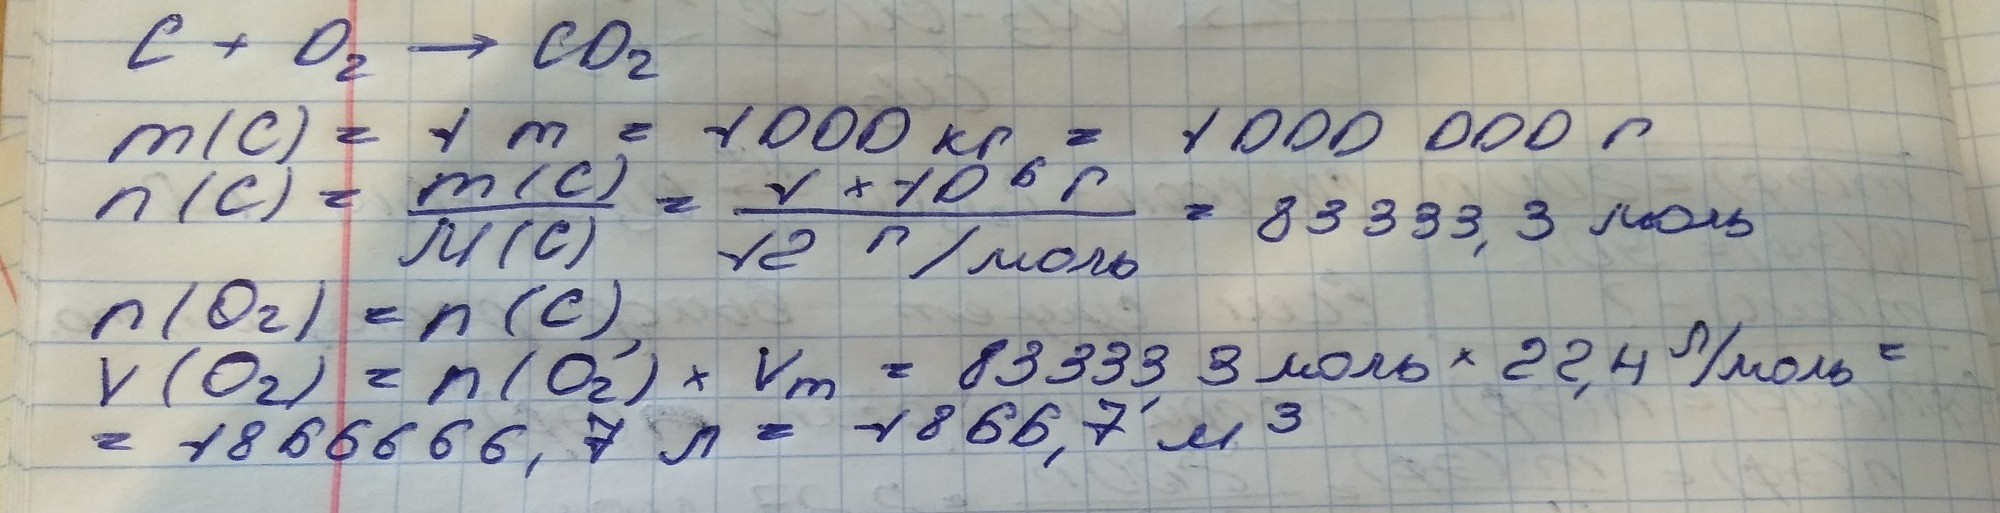 C + O₂ → CO₂
m(C) = 1 т = 1000 кг = 1000 000 г
n(C) = m(C)/M(C) = 1 × 10⁶ г / 12 г/моль = 83333,3 моль
n(O₂) = n(C)
V(O₂) = n(O₂) × Vm = 83333,3 моль × 22,4 л/моль =
= 1866666,7 л = 1866,7 м³